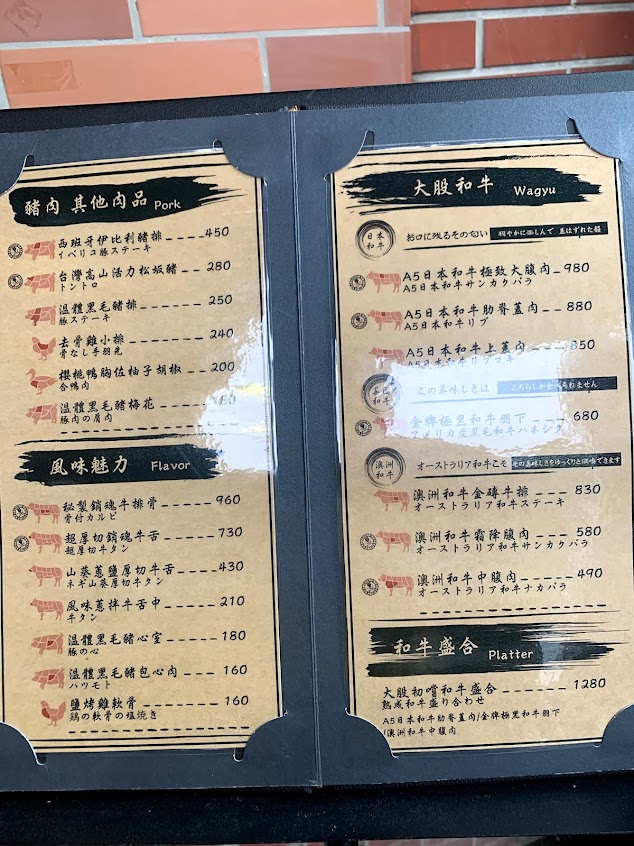 豬肉 其他肉品 Pork
西班牙伊比利豬排 450
イベリコ豚ステーキ
台灣高山活力松坂豬 280
トントロ
温體黑毛豬排 250
豚ステーキ
去骨雞小排 240
骨なし手羽先
櫻桃鴨胸佐柚子胡椒 200
合鴨肉
温體黑毛豬梅花 180
豚肉の肩肉
風味魅力 Flavor
秘製銷魂牛排骨 960
骨付カルビ
超厚切銷魂牛舌 730
超厚切牛タン
山葵蔥鹽厚切牛舌 430
ネギ山葵厚切牛タン
風味蔥拌牛舌中 210
牛タン
温體黑毛豬心室 180
豚の心
温體黑毛豬包心肉 160
ハツモト
鹽烤雞軟骨 160
鶏の軟骨の塩焼き
大股和牛 Wagyu
日本和牛
お口に残るその匂い
A5日本和牛極致大腹肉 980
A5日本和牛サンカクバラ
A5日本和牛肋脊蓋肉 880
A5日本和牛リブ
A5日本和牛上蓋肉 850
A5日本和牛リブマキ
この美味しさは こちらしか食べられません
金牌極黑和牛翼下 680
アメリカ産黒毛和牛ハネシタ
澳洲和牛
オーストラリア和牛こそ その美味しさをゆっくりと堪能できます
澳洲和牛金磚牛排 830
オーストラリア和牛ステーキ
澳洲和牛霜降腹肉 580
オーストラリア和牛サンカクバラ
澳洲和牛中腹肉 490
オーストラリア和牛ナカバラ
和牛盛合 Platter
大股初嚐和牛盛合 1280
熟成和牛盛り合わせ
A5日本和牛肋脊蓋肉/金牌極黑和牛翼下
/澳洲和牛中腹肉